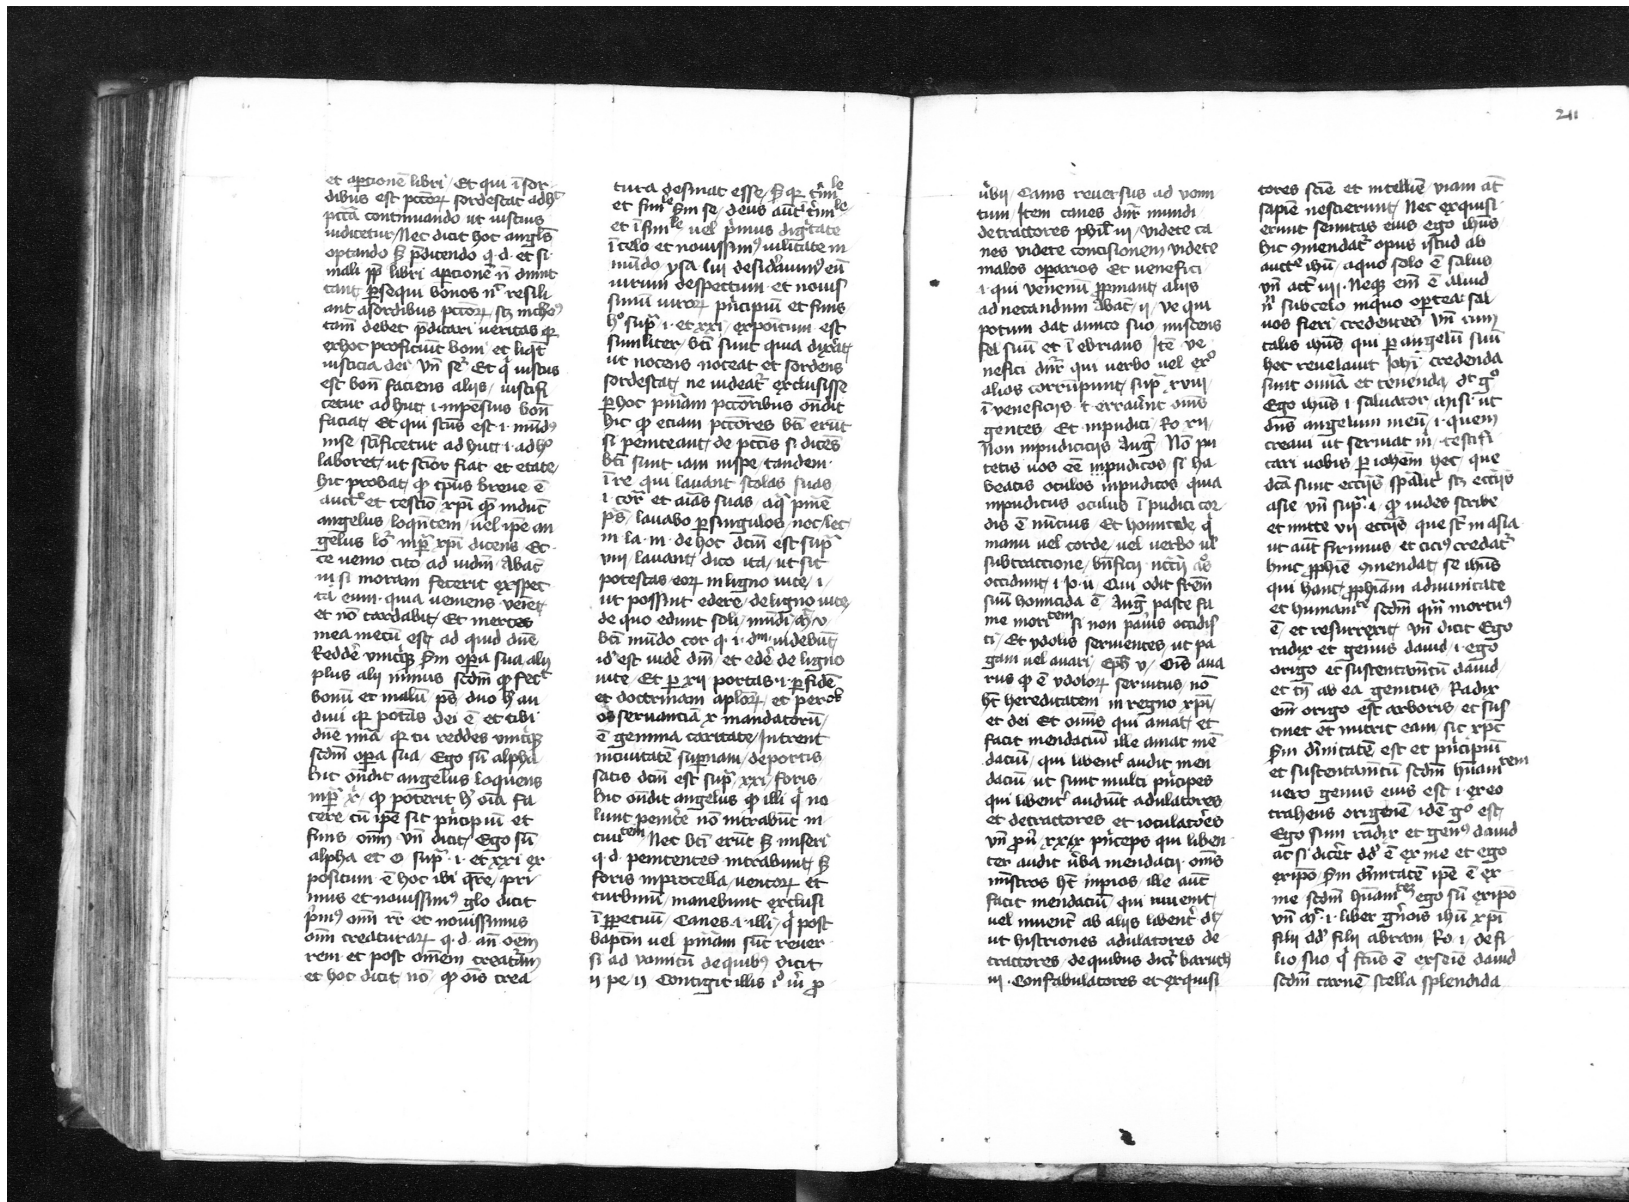 et apcionē libri / Et qui ī sor
dibus est pctōꝝ sordescat adhᶜ
pctā continuando ut iustius
iudicetur / Nec dicit hoc angl̄s
optando sꝫ p̄dicendo q̇ ḋ et si
mali ꝓp̄ libri apcionē n̄ dimit
tant ꝑsequi bonos nᶜ resili
ant a sordibus pctōꝝ
tam̄ debet p̄dicari veritas qꝛ
ex hoc proficiūt boni et
iusticia dei vn̄ seᷓ Et qͥ iustus
est bon̄ faciens alijs / iustifi
cetur ad huc · i · inpēsius bon̄
faciat / Et qui sctūs est · i · mūdꝰ
in se scīficetur ad huc · i · adhᶜ
laboret / ut sctior fiat et etate /
hic probat / ꝙ tp̄us breue ē
auctᶜ et testio xp̄i qꝫ inducit
angelus / loqn̄tem / vel ipe an
gelus loᷓ in p̄ xp̄i dicens Ec
ce uenio cito ad iudm̄ Abac̄
iii si moram fecerit exspec
ta eum · quia ueniens ueiet
et nō tardabit / Et merces
mea mecū est / ad quid dn̄e
Reddē vnicuiqꝫ sm̄ opa sua alij
plus alij minus scdm̄ ꝙ fecᵗ
bonū et malū / ps̄ / duo h̄ au
diui qꝛ potas̄ dei ē et tibi
dn̄e mīa / qꝛ tu reddes vnicuiqꝫ
scdm̄ opa sua / Ego sū alpha
hic on̄dit angelus loquens
in p̄ x̄ / ꝙ poterit hᶜ oīa fa
cere cū ipe sit pͥncipiū et
finis oīm vn̄ dicit / Ego sū
alpha et o sup̄ · i · et xxi ex
positum · ē hoc ibi qͣre / pri
mus et nouissimꝰ glo dicit
pͥmꝰ oīm rr̄ et nouissimus
oīm creaturaꝝ q̇ ḋ an̄ oēm
rem et post omēm creatᷓam
et hoc dicit nō ꝙ oīs crea
tura desinat esse / sꝫ
et simˡᵉ sm̄ se / deus aūt
et ī simˡᵉ / vel pͥmus dignitate
ī celo et nouissimꝰ uilitate in
mūdo / ysa lui desidᷓauimꝰ eū
uirum despectum · et nouis
simū uiroꝝ pͥncipiū et finis
hᵒ sup̄ · i · et xxi / expoītum est
similiter / bt̄i sunt quia dixᷓat
ut nocens noceat et sordens
sordescat / ne uideatᷓ exclusisse
ꝑ hoc pniām pctōribus on̄dit
hic ꝙ eciam pctōres bt̄i erūt
si peniteant / de pctīs si dicēs
bt̄i sunt iam in spe / tandem
ī re qui lauant stolas suas
· i · corᵃ et aīas suas aqᷓ pn̄ie
ps̄ / lauabo ꝑ singulas noc / lec
in · la · iii · de hoc dcm̄ est sup̄
viii / lauant / dico ita / ut sit
potestas eoꝝ in ligno uite / i /
ut possint edere / de ligno uite
de quo edunt soli / mūdi / mᷓ v
bt̄i mūdo cor q̇ · i · dᵐ uidebūt /
id est uidē dm̄ / et edē de ligno
uite / Et ꝑ xii portas · i · ꝑ fidē
et doctrinam aplōꝝ / et per ob
seruanciā x mandatorū /
ē gemma caritate / Intrent
in ciuitatē supnam / de portis
satis dcm̄ est sup̄ · xxi · foris
hic on̄dit angelus ꝙ illi qͥ no
lunt penitē nō intrabūt in
ciuiᵗᵉᵐ Nec bt̄i erūt sꝫ miseri
q̇ ḋ penitentes intrabunt / sꝫ
foris in procella / uentoꝝ et
turbinū / manebunt exclusi
ī ꝑpetuū / Canes · i · illi / qͥ post
baptm̄ vel pniām sūt reuer
si ad vomitū de quibꝰ dicit
ii pe / ii Contigit illis iᵈ
uͥbii / Canis reuersus ad vomi
tum / Item canes dn̄r mundi
detractores phil̄ iii / videte ca
nes videte concisionem videte
malos oparios Et venefici
· i · qui venenū ꝓpinant / aliis
ad necandum Abac̄ / ii / ve qui
potum dat amico suo / miscens
fel suū et ī ebrians Itē ve
nefici dn̄r qui verbo vel exᵒ
alios corrūpunt / sup̄ xviii
ī veneficijs · t̄ errauͥnt omēs
gentes Et inpudici / Ro xii
Non inpudicicijs Auḡ Nō pu
tetis uos eē inpudicos si ha
beatis oculos inpudicos quia
inpudicus oculus ī pudici cor
dis ē nūcius / Et homicide qͥ
manu vel corde / vel verbo ul̄
subtraccione / bn̄ficij
occidunt / i · Jo · ii · Qui odit frēm
suū homicida ē Auḡ pasce fa
me moriᵗᵉᵐ si non pauis occidis
ti / Et ydolis seruientes ut pa
gani vel auari / Eph̄ v / Oīs aua
rus ꝙ ē ydoloꝝ seruitus / nō
hᷓt hereditatem in regno xp̄i /
et dei Et omīs qui amat / et
facit mendaciū ille amat mē
daciū / qui libentᷓ audit men
daciū / ut sunt multi pͥncipes
qui libentᷓ audiūt adulatores
et detractores et ioculatores
vn̄ ꝓu̇ / xxix pͥnceps qui liben
ter audit ūba mendacii · omēs
mīstros hᷓt inpios / ille aūt
facit mendaciū / qui inuenit /
vel inuenit ab alijs libentᷓ d̄t /
ut histriones adulatores de
tractores / de quibus dictᷓ baruch
iii · Confabulatores et exquisi
tores scīe et intelliē / viam aūt
sapiē nescierunt / Nec exquisi
erunt semitas eius ego ih̄us
hic ꝯmendatᷓ opus istud ab
auctᵉ ih̄u / a quo solo ē salus
vn̄ act̄ iiii · Neqꝫ em̄ ē aliud
n̄ sub celo in quo oportear sal
uos fieri / credentes vn̄ cum
talis ih̄us qui ꝑ angelū suū
hec reuelauit Joh̄i credenda
sunt omīa et tenenda dr̄ gᵒ
Ego ih̄us · i · saluator misi ut
dn̄s angelum meū / · i · quem
creaui ut seruiat m̄ · testifi
cari uobis ꝑ ioh̄em hec / que
dc̄a sunt ecc̄ijs
asie vn̄ sup̄ · i · ꝙ uides scribe
et mitte vii ecc̄ijs que st̄ in asia
ut aūt firmius et ciciꝰ credatᷓ
huic ꝓph̄ie ꝯmendat / se ih̄us
qui hanc / ꝓph̄iam a diuinitate
et humaniᵗᵉ scdm̄ qm̄ mortuꝰ
ē / et resurrexit / vn̄ dicit Ego
radix et genus dauid / · i · ego
origo et sustentam̄tū dauid /
et tn̄ ab ea genitus Radix
em̄ origo est arboris et sus
tinet et nutrit eam / sic xp̄c
sm̄ diuinitatē est et pͥncipiū
et sustentam̄tū scdm̄ hūamᵗᵉᵐ
uero genus eius est · i · ex eo
trahens originē idē gᵒ est /
Ego sum radix et genꝰ dauid
ac si dicēt dd̄ ē ex me et ego
ex ipo / sm̄ diuinitatē ipe ē ex
me scdm̄ hūamᵗᵉᵐ ego sū ex ipo
vn̄ mᷓ · i · liber gn̄ois ih̄u xp̄i
filij dd̄ filij abram Ro · i · de fi
lio suo qͥ fc̄us ē ex seīe dauid
scdm̄ carnē stella splendida
211